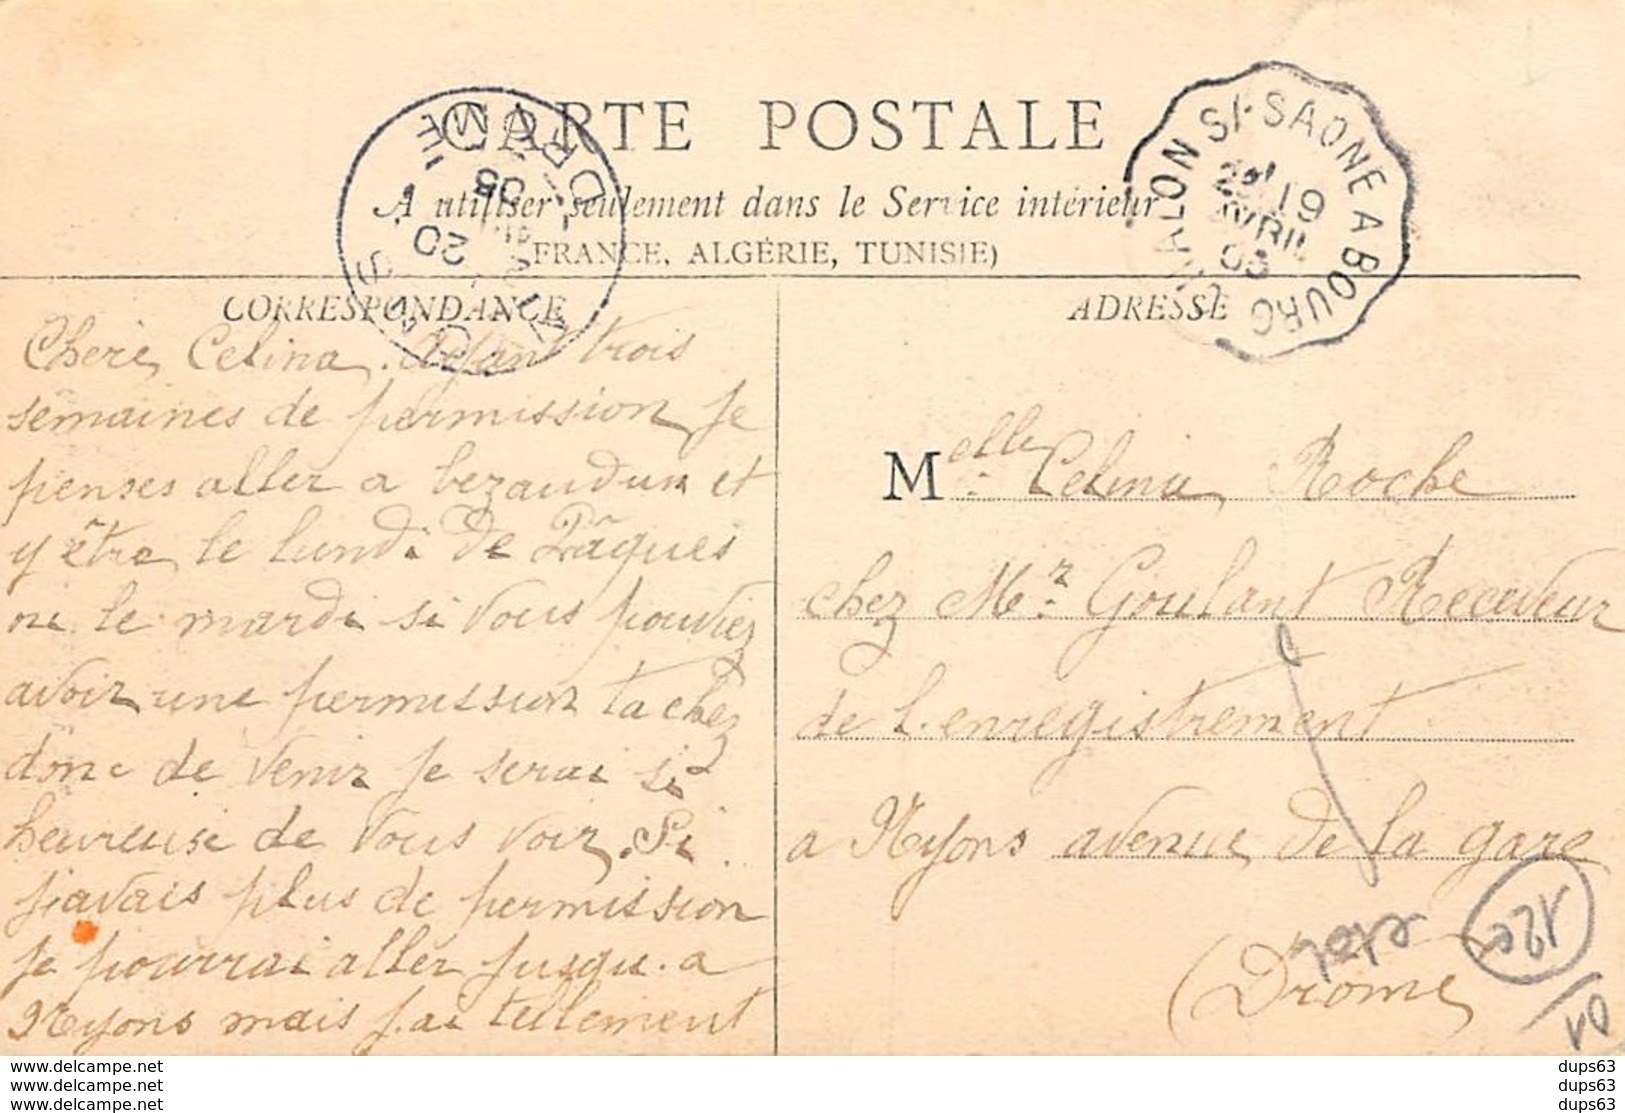 CARTE POSTALE
A utiliser seulement dans le Service intérieur
(FRANCE, ALGÉRIE, TUNISIE)
CHALON S/-SAONE A BOURG
2E 19
AVRIL
05
DROME
20
05
NYONS
CORRESPONDANCE
Cheré Celina. Ayant trois
semaines de permission je
penses aller a bezaudun et
y être le lundi de Pâques
ou le mardi si vous pouviez
avoir une permission tachez
donc de venir je serai si
heureuse de vous voir. Si
j'avais plus de permission
je pourrai aller jusqu. a
Nyons mais j.ai tellement
ADRESSE
Melle Celina Roche
chez Mr Goulant Receveur
de l.enregistrement
a Nyons avenue de la gare
(Drome
12e
01
www.delcampe.net
www.delcampe.net
www.delcampe.net
dups63
dups63
dups63